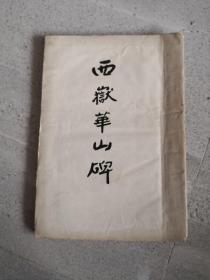 西嶽華山碑